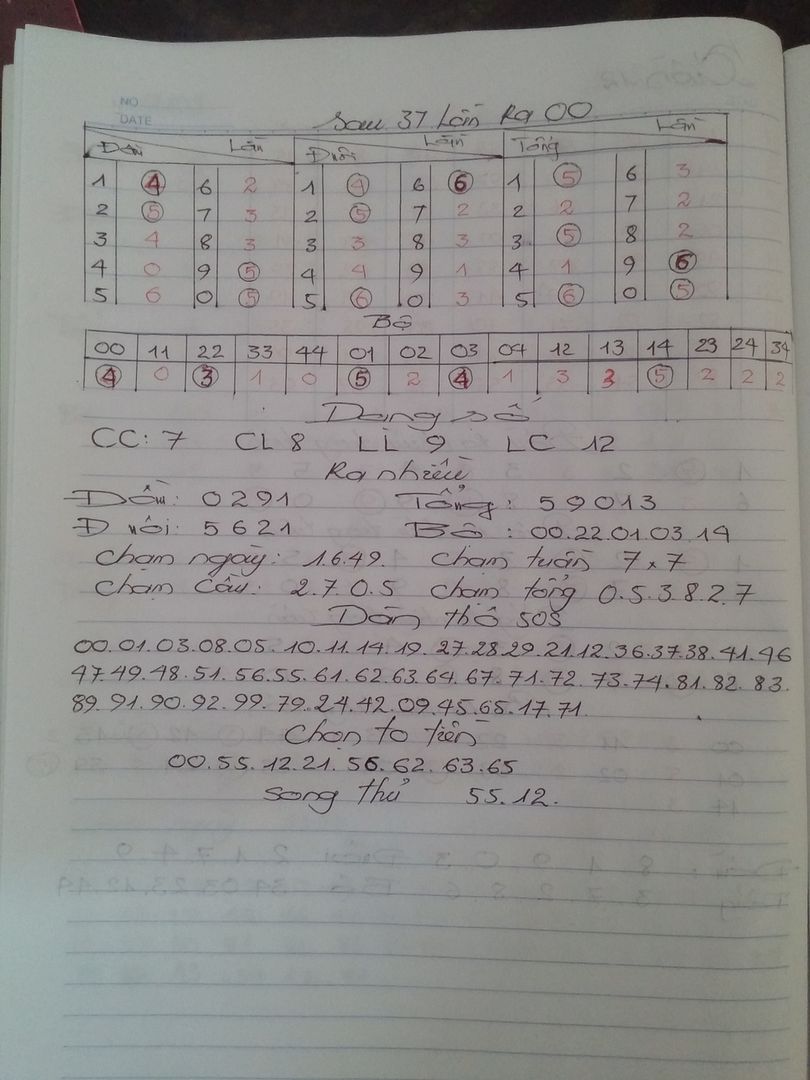 NO
DATE
Sau 37 Lần Ra 00
Đầu Lần Đuôi Lần Tổng Lần
1 4 6 2 1 4 6 6 1 5 6 3
2 5 7 3 2 5 7 2 2 2 7 2
3 4 8 3 3 3 8 3 3 5 8 2
4 0 9 5 4 4 9 1 4 1 9 6
5 6 0 5 5 6 0 3 5 6 0 5
Bộ
00 11 22 33 44 01 02 03 04 12 13 14 23 24 34
4 0 3 1 0 5 2 4 1 3 3 5 2 2 2
Dạng số
CC: 7 CL 8 LL 9 LC 12
Ra nhiều
Đầu: 0291 Tổng: 59013
Đuôi: 5621 Bộ: 00.22.01.03.14
Chạm ngày: 1.6.4.9. Chạm tuần 7x7
Chạm Câu: 2.7.0.5 Chạm tổng 0.5.3.8.2.7
Dàn thô 50S
00.01.03.08.05.10.11.14.19.27.28.29.21.12.36.37.38.41.46
47.49.48.51.56.55.61.62.63.64.67.71.72.73.74.81.82.83.
89.91.90.92.99.79.24.42.09.45.65.17.71.
Chọn to tiền
00.55.12.21.56.62.63.65
Song thủ 55.12.